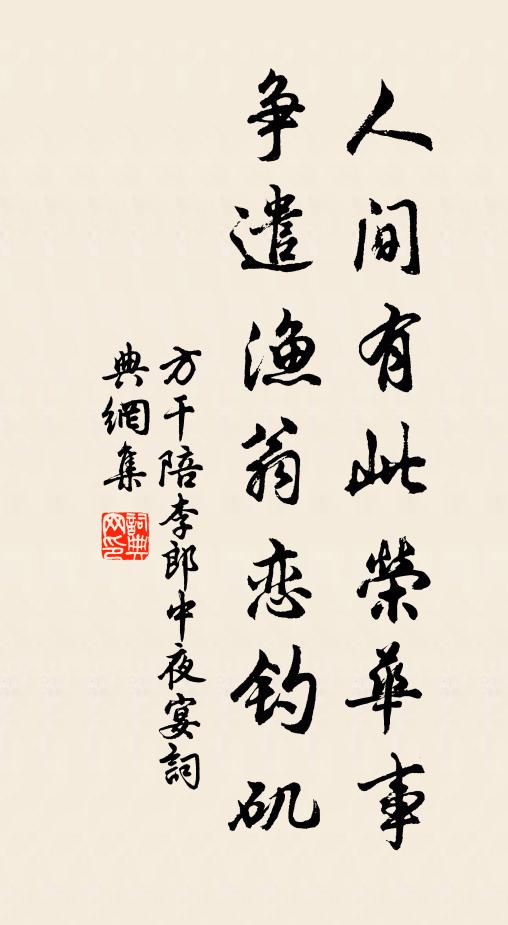 人间有此榮華事
争遣渔翁恋釣矶
方干陪李郎中夜宴詞
典網集
詞典
网印